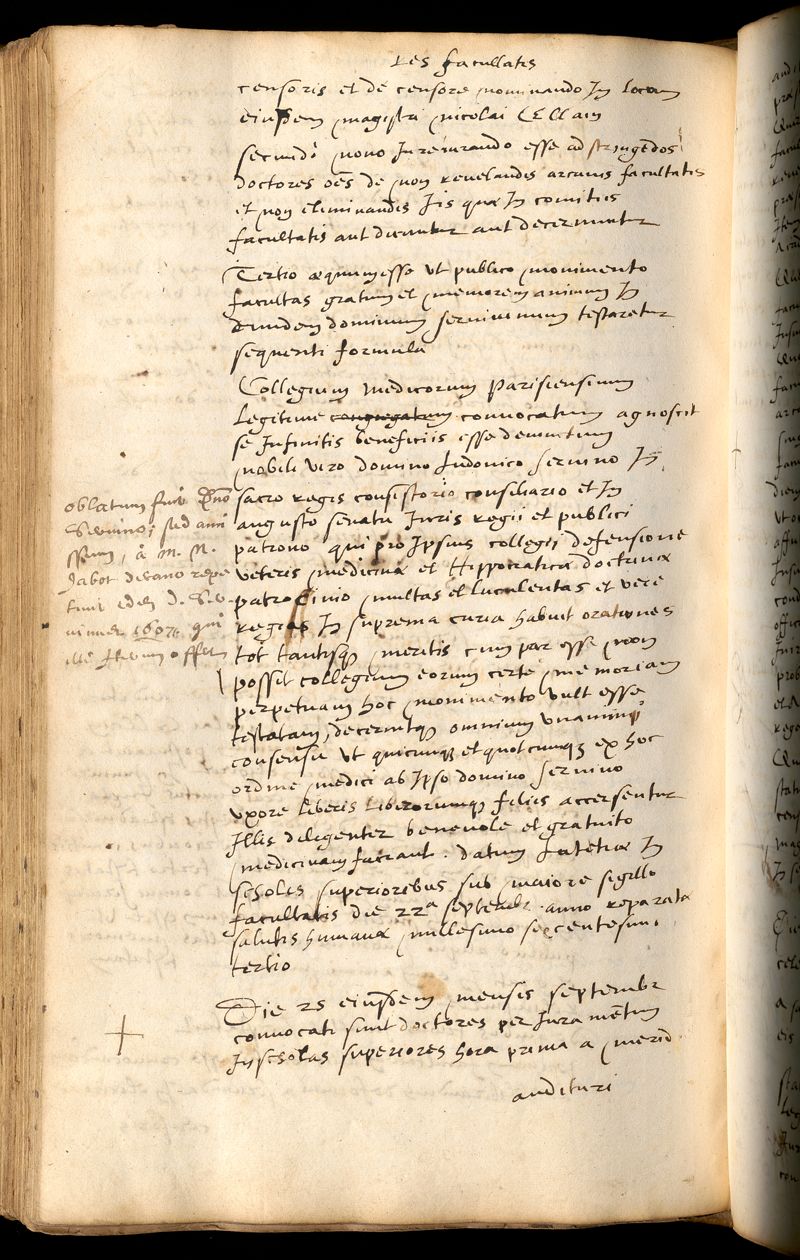 Res facultatis
censoris et de censore nominando In locum
eiusdem magistri nicolai Ellain
secundo novo Jureiurando esse adstringēdos
doctores oēs de non revelandis arcanis facultatis
et non eliminandis Iis quæ In comitiis
facultatis aut dicuntur aut decernuntur
Tertio æquum esse ut publico monimento
facultas gratum et memorem animum In
eundem dominum servinum testaretur
sequenti formula
Collegium medicorum parisiensium
Legitime congregatum convocatum agnoscit
se Infinitis beneficiis esse devinctum
nobili viro domino ludovico servino In
sacro regis consistorio consiliario et In
augusto senatu Iuris regii et publici
patrono qui pro Ipsius collegii defensione
veteris medicinæ et Hippocraticæ doctrinæ
patrocinio multas et luculentas et vere
regias In suprema curia habuit orationes
tot tantisq meritis cum par esse non
possit collegium eorum certe memoriam
perpetuam hoc monimento vult esse
testatam, decernitq omnium unanimi
consensu ut quicunq et quotcunq ex hoc
ordine medici ab Ipso domino servino
uxore liberis liberorumq filiis accersentur
Illis diligenter benevole et gratuito
medicinam faciant. datum lutetiæ In
scholis superioribus sub maiore sigillo
facultatis die 22ª septembr anno reparatæ
salutis humanæ millesimo sexcentesimo
tertio
oblatum fuit Dno
Servino; sed
a M. N.
Jabot decano
eidē D. Ser-
1607. qui
ille iterum
Die 25 eiusdem mensis septembr
convocati sunt doctores per Iuramētum
In scholas superiores hora prima a merid
audituri